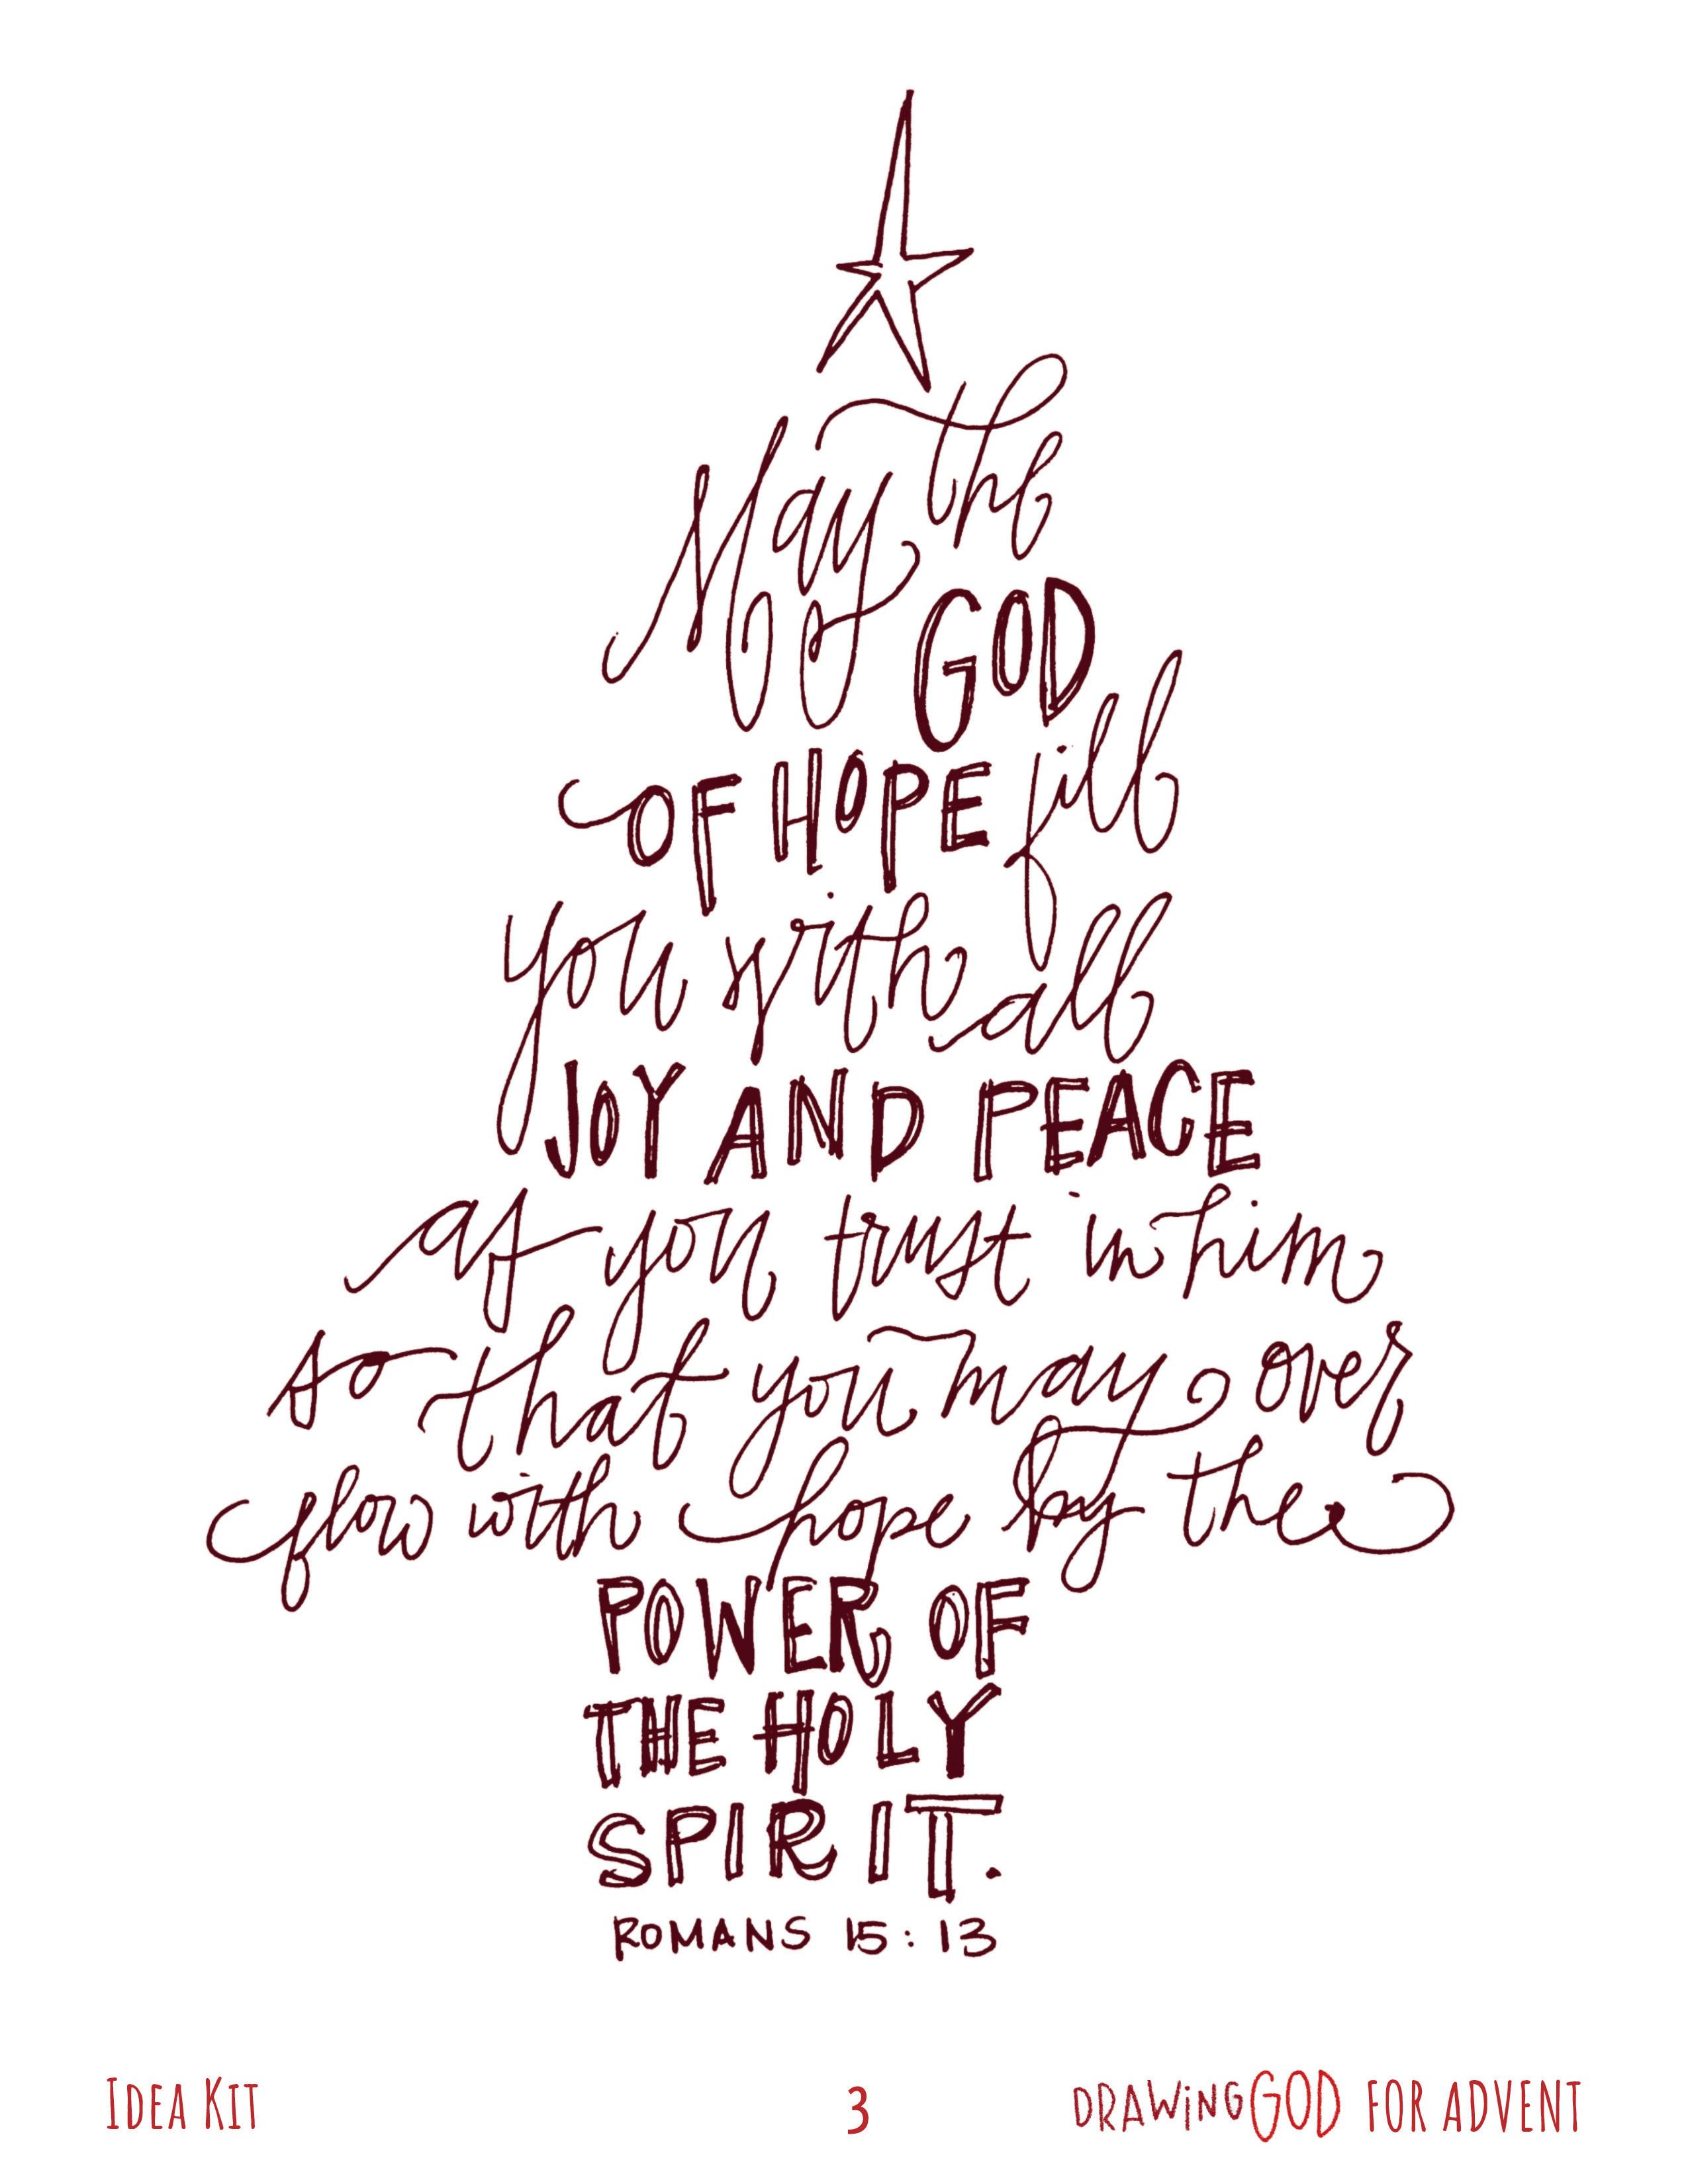 May the
GOD
OF HOPE fill
you with all
JOY AND PEACE
as you trust in him
so that you may over
flow with hope by the
POWER OF
THE HOLY
SPIRIT.
ROMANS 15:13
IDEA KIT 3 DRAWING GOD FOR ADVENT